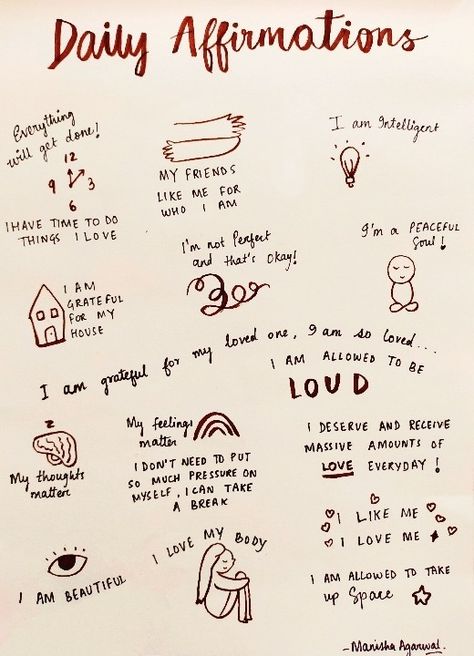 Daily Affirmations
Everything
will get done!
12
9 3
6
I HAVE TIME TO DO
THINGS I LOVE
MY FRIENDS
LIKE ME FOR
WHO I AM
I am Intelligent
I AM
GRATEFUL
FOR MY
HOUSE
I'm not Perfect
and that's Okay!
I'm a PEACEFUL
Soul!
I am grateful for my loved one, I am so loved....
I AM ALLOWED TO BE
LOUD
My thoughts
matter
My feelings
matter
I DON'T NEED TO PUT
SO MUCH PRESSURE ON
MYSELF, I CAN TAKE
A BREAK
I DESERVE AND RECEIVE
MASSIVE AMOUNTS OF
LOVE EVERYDAY!
I AM BEAUTIFUL
I LOVE MY BODY
I LIKE ME
I LOVE ME
I AM ALLOWED TO TAKE
up Space
-Manisha Agarwal.